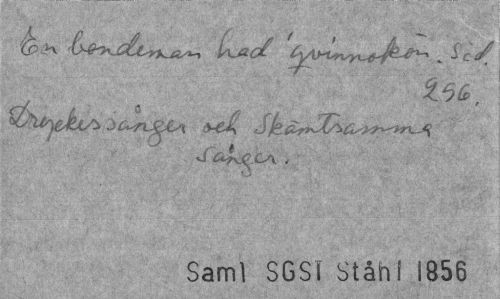 En bondeman had 'qvinnokön. Sid.
296.
Dryckessånger och Skämtsamma
Sånger.
Saml SGSI Ståhl 1856